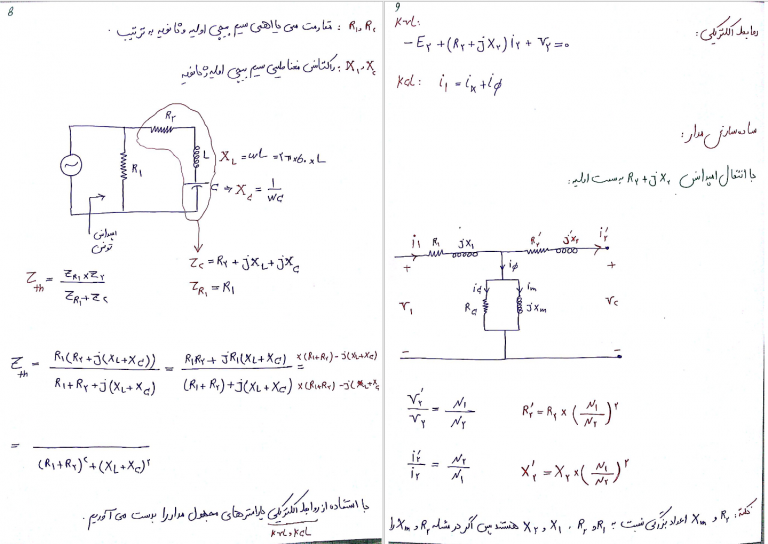 8
R₁ و R₂ : مقاومت می یا اهمی سیم پیچی اولیه و ثانویه به ترتیب .
X₁ و X₂ : راکتانس مغناطیسی سیم پیچی اولیه و ثانویه
R₂
R₁
L
X_L = ωL = 2π×60×L
C ⇒ X_C = 1/(ωC)
امپدانس تونن
Z_C = R₂ + jX_L + jX_C
Z_R₁ = R₁
Z_th = (Z_R₁ × Z_2)/(Z_R₁ + Z_C)
Z_th = R₁(R₂ + j(X_L + X_C))/(R₁ + R₂ + j(X_L + X_C)) = (R₁R₂ + jR₁(X_L + X_C))/((R₁ + R₂) + j(X_L + X_C)) × (R₁+R₂) - j(X_L+X_C) / × (R₁+R₂) - j(X_L+X_C =
= /((R₁ + R₂)² + (X_L + X_C)²)
با استفاده از روابط الکتریکی پارامترهای مجهول مدار را بدست می آوریم .
KVL و KCL
9
روابط الکتریکی:
KVL:
-E₂ + (R₂ + jX₂) i₂ + V₂ = 0
KCL: i₁ = i_x + iφ
ساده سازی مدار:
با انتقال امپدانس R₂ + jX₂ به سمت اولیه:
i₁ R₁ jX₁ R₂′ jX₂′ i₂′
+ iφ +
V₁ i_c i_m V_c
R_C jX_m
- -
V₂′/V₂ = N₁/N₂ R₂′ = R₂ × (N₁/N₂)²
i₂′/i₂ = N₂/N₁ X₂′ = X₂ × (N₁/N₂)²
نکته: R₂ و X_m اعداد بزرگی نسبت به R₁ و R₂ , X₁ و X₂ هستند پس اگر در مسئله R₂ و X_m را